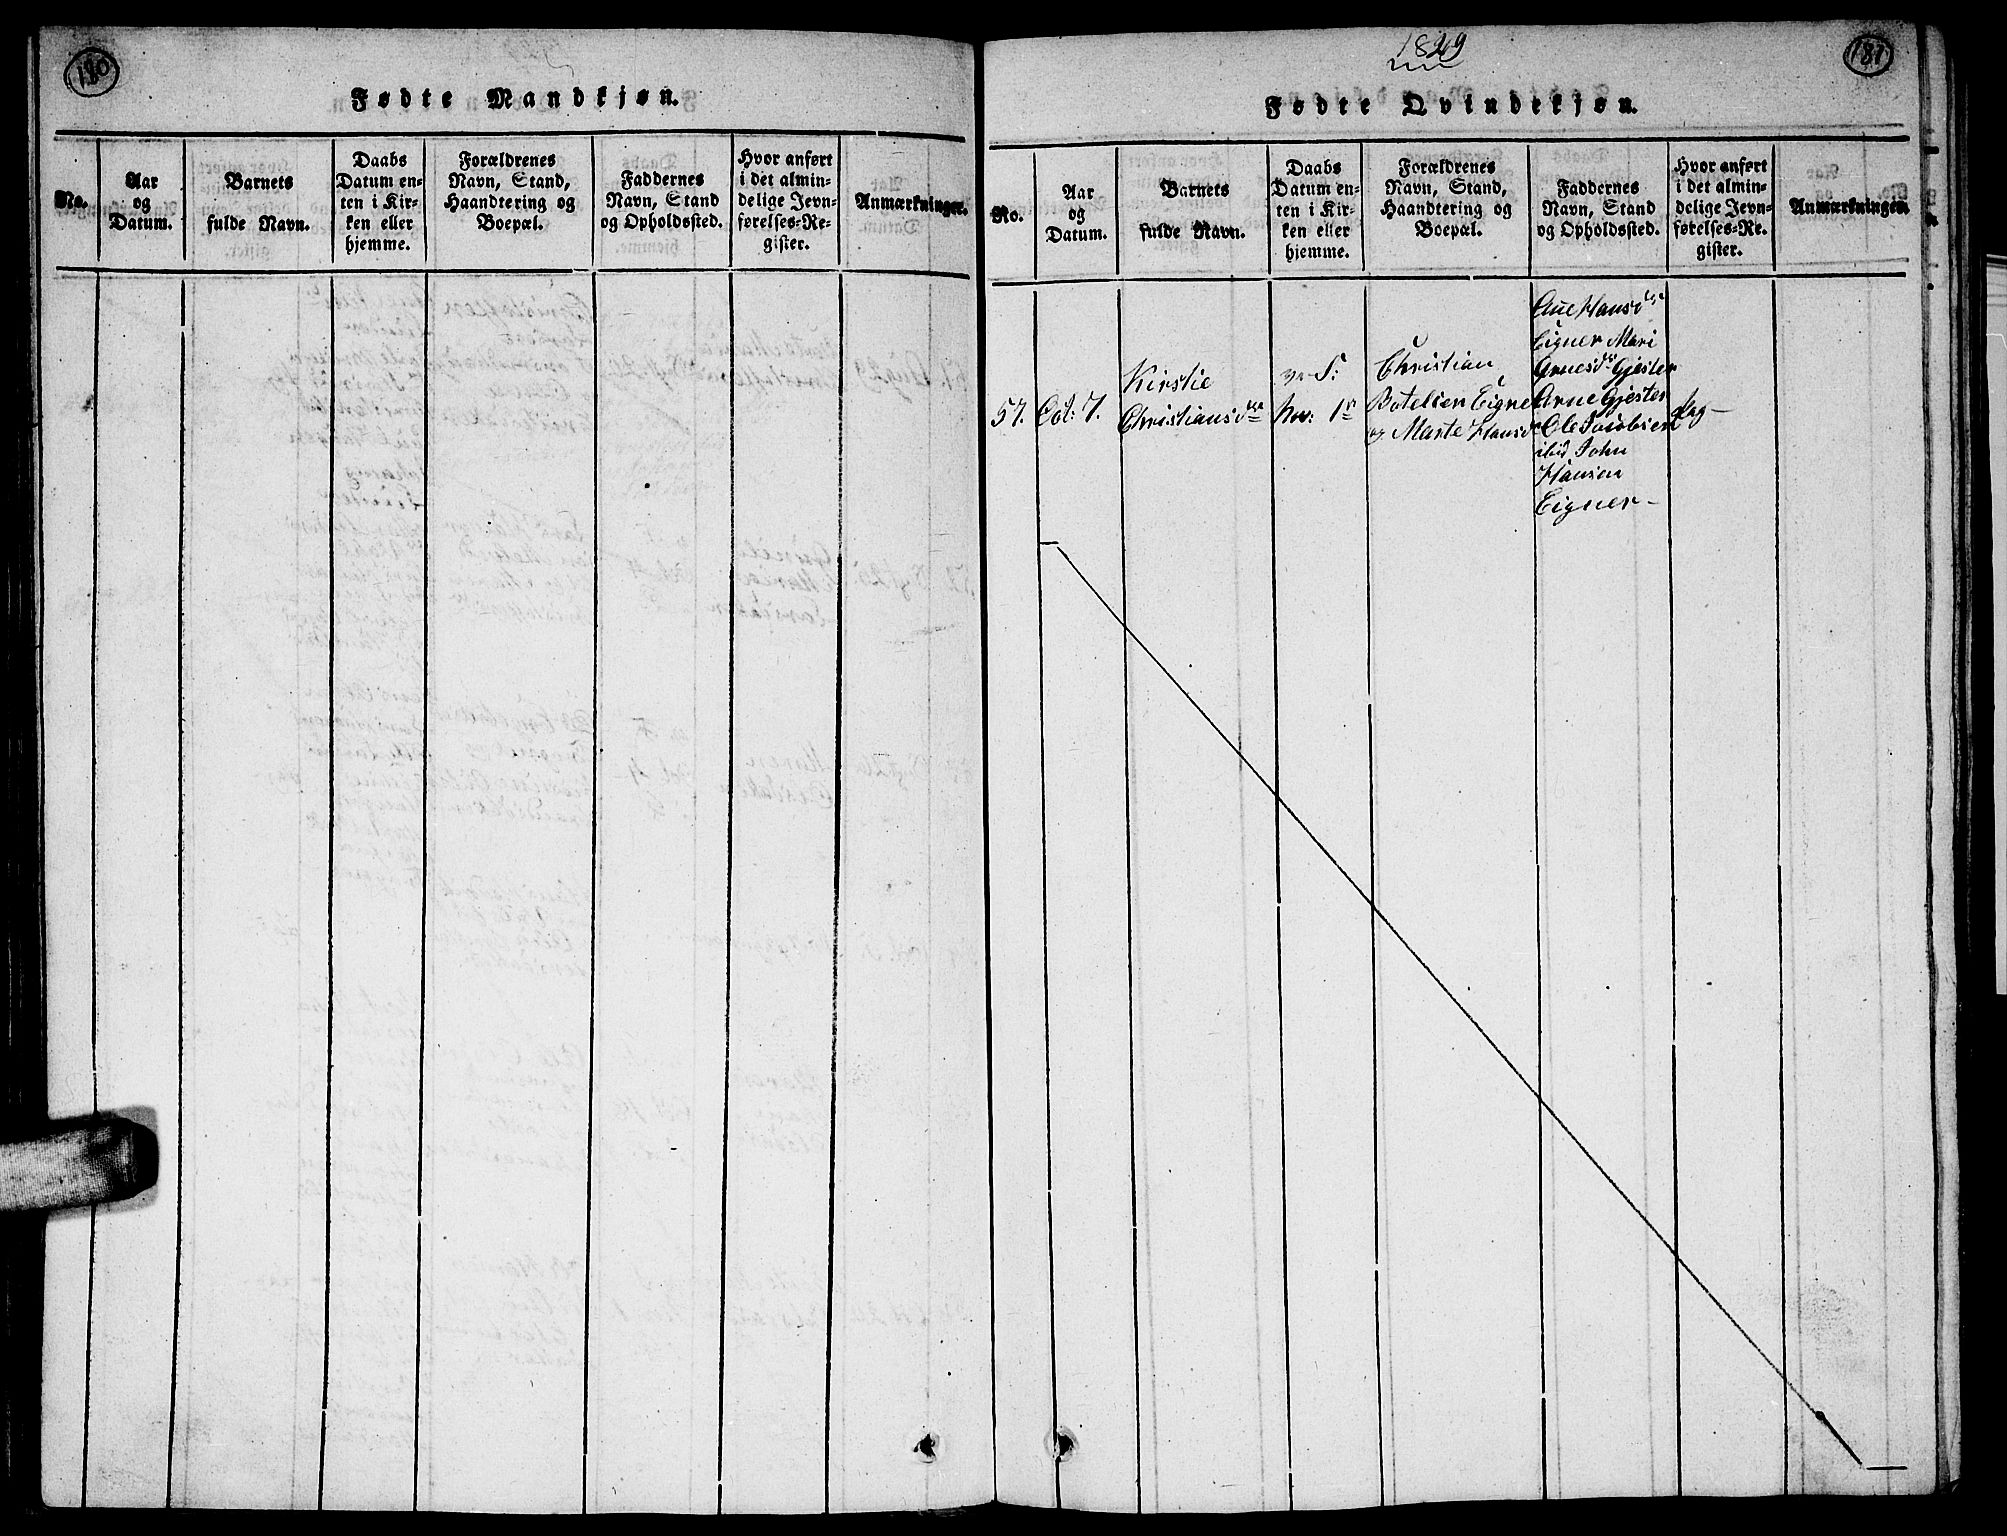 180
Fødte Mandkjøn.
No.
Aar
og
Datum.
Barnets
fulde Navn.
Daabs
Datum en-
ten i Kir-
ken eller
hjemme.
Forældrenes
Navn, Stand,
Haandtering og
Boepæl.
Faddernes
Navn, Stand
og Opholdssted.
Hvor anført
i det almin-
delige Jevn-
førelses-Re-
gister.
Anmærkninger.
1829
181
Fødte Qvindekjøn.
No.
Aar
og
Datum.
Barnets
fulde Navn.
Daabs
Datum en-
ten i Kir-
ken eller
hjemme.
Forældrenes
Navn, Stand,
Haandtering og
Boepæl.
Faddernes
Navn, Stand
og Opholdssted.
Hvor anført
i det almin-
delige Jevn-
førelses-Re-
gister.
Anmærkninger
57.
Oct: 7.
Kirstie
Christiansd
Nov: 1
Christian
Botelsen Eigne
og Marte Hansd
Ane Hansd
Eigner Mari
Arnesd Gjester
Arne Gjester
Ole Jacobsen
ibid John
Hansen
Eigner-